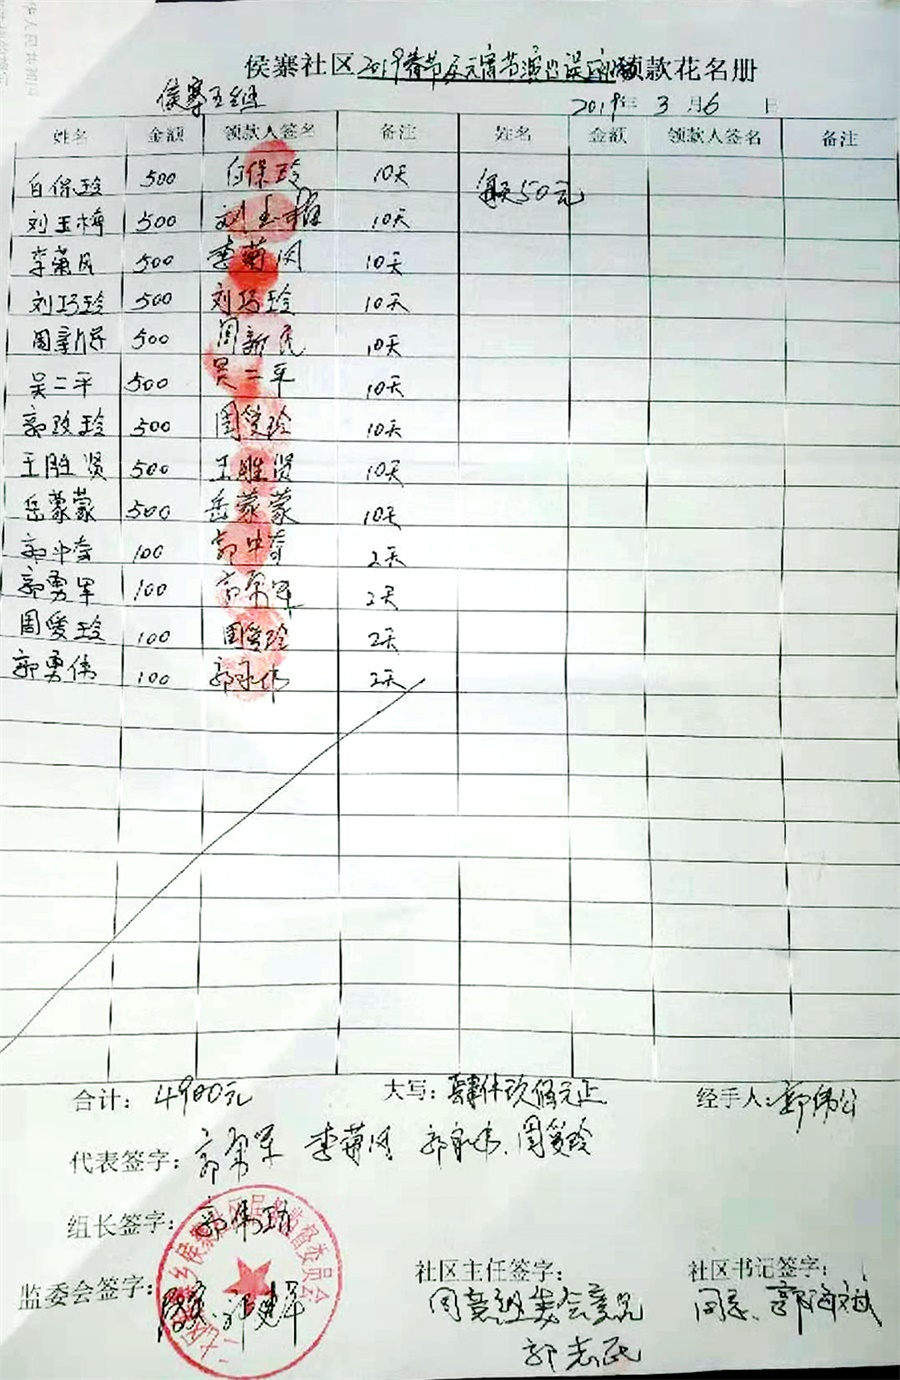 侯寨社区2019春节及元宵节演出误工补领款花名册
侯寨五组
2019年 3 月 6 日
姓名 金额 领款人签名 备注 姓名 金额 领款人签名 备注
白保玲 500 白保玲 10天 每天50元
刘玉梅 500 刘玉梅 10天
李菊风 500 李菊风 10天
刘巧玲 500 刘巧玲 10天
周新民 500 周新民 10天
吴二平 500 吴二平 10天
郭改玲 500 周爱玲 10天
王胜贤 500 王胜贤 10天
岳蒙蒙 500 岳蒙蒙 10天
郭中奇 100 郭中奇 2天
郭勇军 100 郭勇军 2天
周爱玲 100 周爱玲 2天
郭勇伟 100 郭永伟 2天
合计: 4900元 大写: 肆仟玖佰元正 经手人: 郭伟公
代表签字: 郭勇军 李菊风 郭永伟 周爱玲
组长签字: 郭伟
监委会签字: 郭建军
社区主任签字: 社区书记签字:
同意组委会意见
郭志民
同意